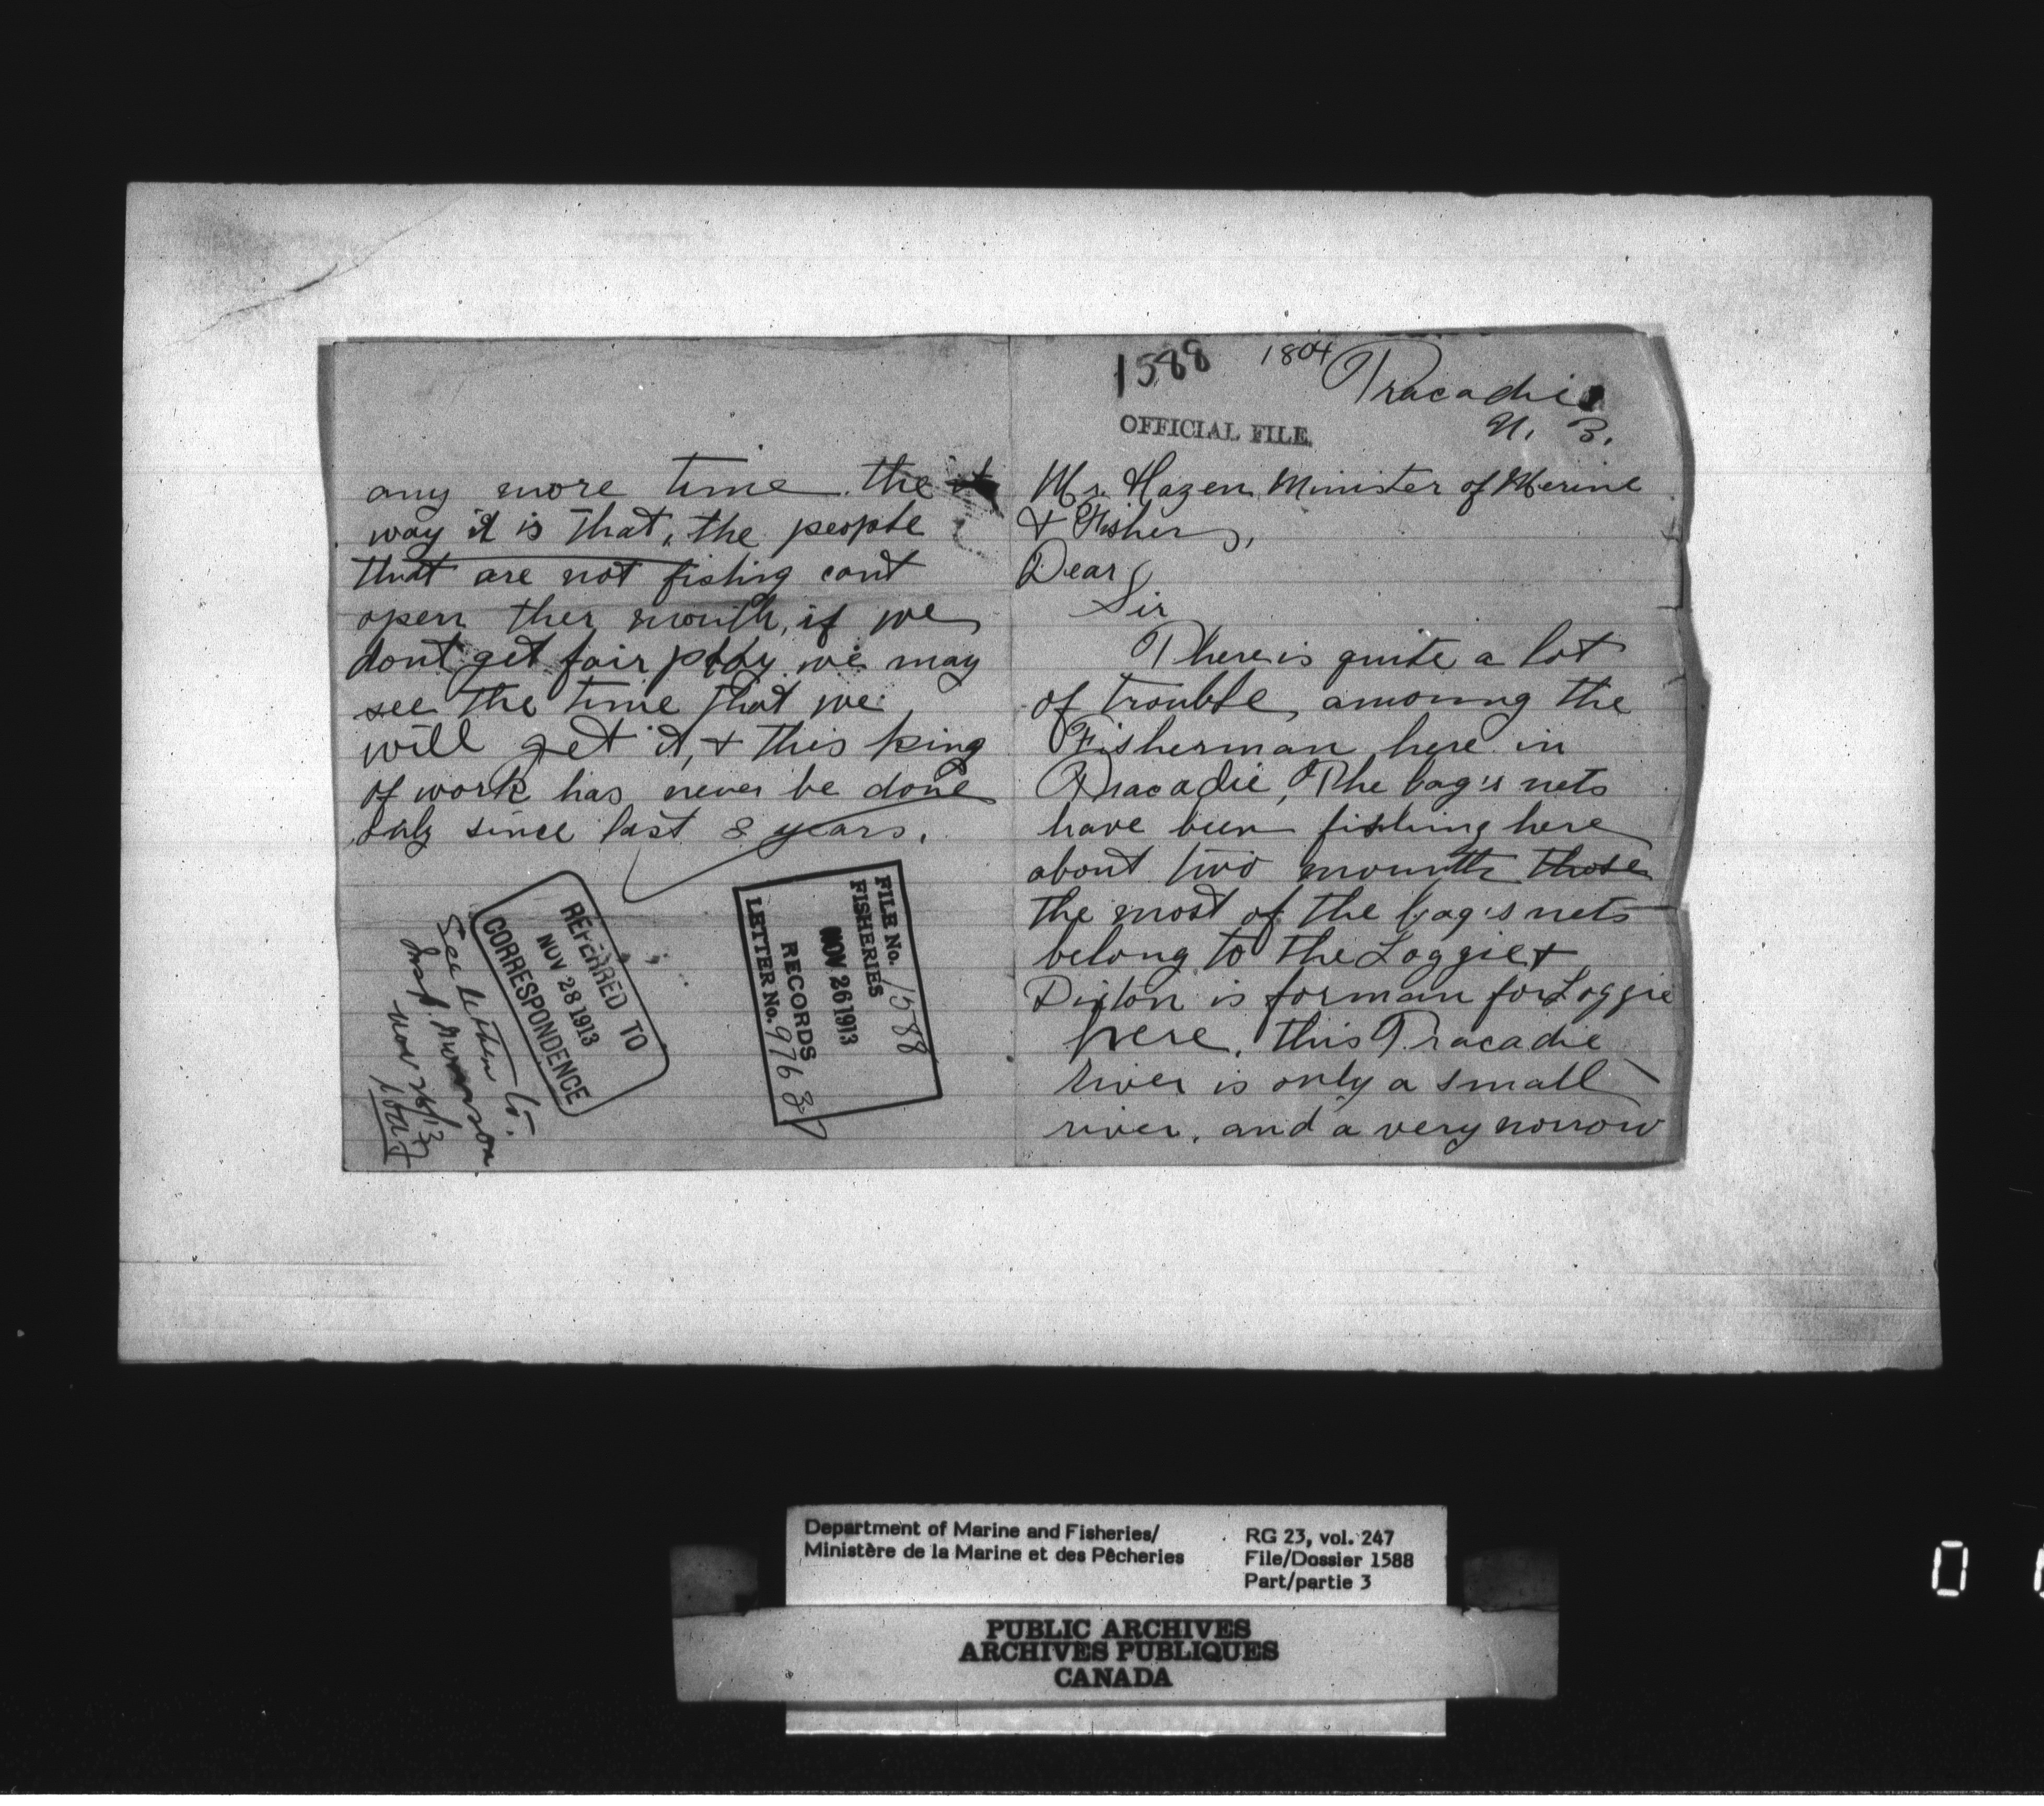 any more time the
way it is that, the people
that are not fishing cant
open ther mouth, if we
dont get fair play we may
see the time that we
will get it, & this king
of work has never be done
only since last 8 years.
REFERRED TO
NOV 28 1913
CORRESPONDENCE
See letter to
Insp. Morrison
Nov 28/13
FILE No. 1588
FISHERIES
NOV 26 1913
RECORDS
LETTER No. 9763
1588 1804
OFFICIAL FILE.
Tracadie
N. B.
Mr. Hazen Minister of Merine
& Fishers,
Dear
Sir
There is quite a lot
of trouble, amoung the
Fisherman here in
Tracadie, The bag's nets
have been fishing here
about two mounth those
the most of the bag's nets
belong to the Loggie &
Dixon is forman for Loggie
here, this Tracadie
river is only a small
river, and a very norrow
Department of Marine and Fisheries/
Ministère de la Marine et des Pêcheries
RG 23, vol. 247
File/Dossier 1588
Part/partie 3
PUBLIC ARCHIVES
ARCHIVES PUBLIQUES
CANADA
0